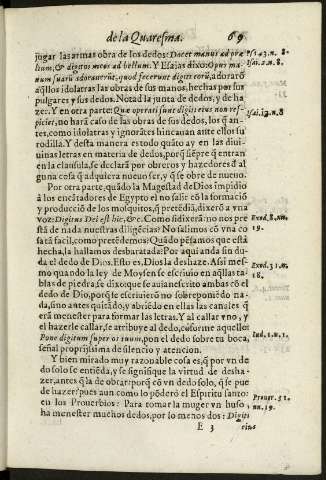 de la Quaresma. 69
jugar las armas obra de los dedos: Docet manus ad præ
lium, & digitos meos ad bellum. Y Esaias dixo: Opus ma
nuum suarū adorauerūt, quod fecerunt digiti eorū, adorarō
aq̃llos idolatras las obras de sus manos, hechas por sus
pulgares y sus dedos. Notad la junta de dedos, y de ha-
zer. Y en otra parte: Que operati sunt digiti eius non res-
piciet, no hará caso de las obras de sus dedos, los q̃ an-
tes, como idolatras y ignorātes hincauan ante ellos su
rodilla. Y desta manera estodo quāto ay en las diui-
uinas letras en materia de dedos, porq̃ siēpre q̃ entran
en la clausula, se declarā por obreros y hazedores d̃al
guna cosa q̃ adquiera nueuo ser, y q̃ se obre de nueuo.
Por otra parte, quãdo la Magestad de Dios impidió
à los encātadores de Egypto el no salir cō la formació
y producció de los mosquitos, q̃ pretēdiā, dixerō a vna
voz: Digitus Dei est hic, &c. Como si dixerā: no nos pre
stā de nada nuestras diligēcias? No salimos cō vna co
sa tā facil, como pretēdemos: Quādo pēsamos que está
hecha, la hallamos desbaratada: Por aqui anda sin du-
da el dedo de Dios. Esto es, Dios la deshaze. Asi mes-
mo quando la ley de Moysen se escriuio en aq̃llas ta
blas de piedra, se dixo que se auian escrito ambas cō el
dedo de Dios, porq̃ se escriuierō no sobreponiēdo na-
da, sino antes quitādo, y abriēdo en ellas las canales q̃
erā menester para formar las letras. Y al callar vno, y
el hazerle callar, se atribuye al dedo, cōforme aquello:
Pone digitum super os tuum, pon el dedo sobre tu boca,
señal propriissima de silencio y atencion.
Y bien mirado muy razonable cosa es, q̃ por vn de
do solo se entiēda, y se signifique la virtud de desha-
zer, antes q̃ la de obrar: porq̃ cō vn dedo solo, q̃ se pue
de hazer? pues aun como lo pōderó el Espiritu santo:
en los Prouerbios: Para tomar la muger vn huso,
ha menester muchos dedos, por lo menos dos: Digiti
E 3 eius
Isai. 2. n. 8
Isai. 17. n. 8
Exod. 8. nu.
19.
Exod. 31. n.
18.
Iud. 18. n. 1.
Prouer. 31.
nu. 19.